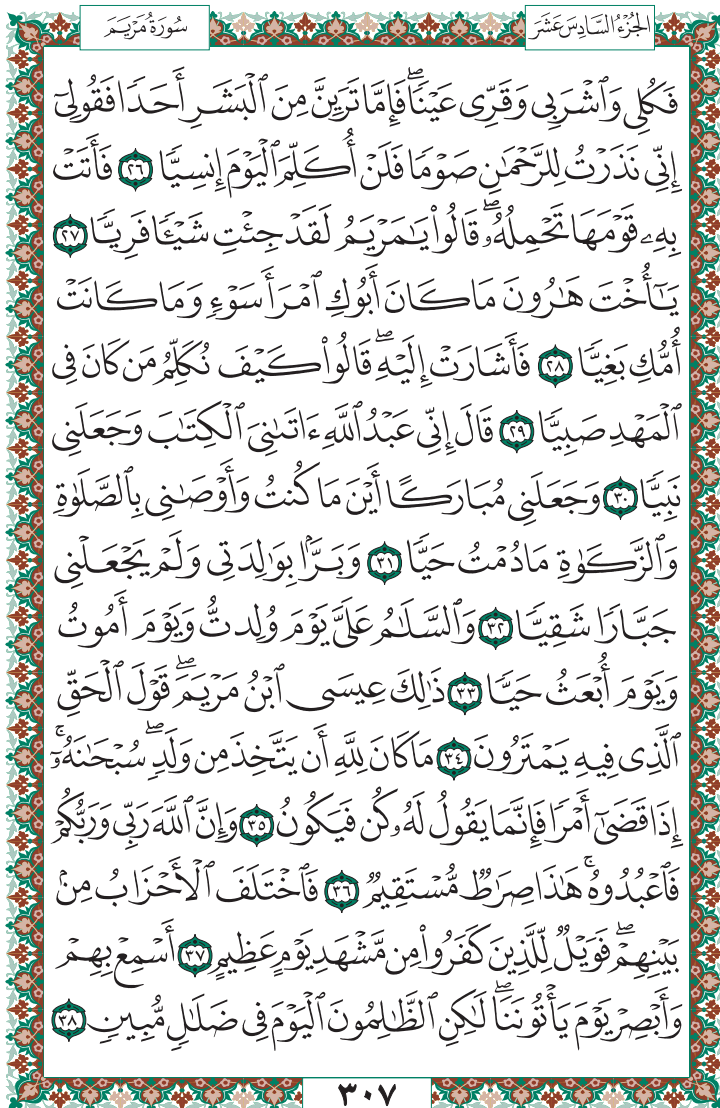 الجُزْءُ السَّادِسَ عَشَرَ
سُورَةُ مَرْيَمَ
فَكُلِى وَٱشْرَبِى وَقَرِّى عَيْنًاۖ فَإِمَّا تَرَيِنَّ مِنَ ٱلْبَشَرِ أَحَدًا فَقُولِىٓ
إِنِّى نَذَرْتُ لِلرَّحْمَٰنِ صَوْمًا فَلَنْ أُكَلِّمَ ٱلْيَوْمَ إِنسِيًّا ٢٦ فَأَتَتْ
بِهِۦ قَوْمَهَا تَحْمِلُهُۥۖ قَالُوا۟ يَٰمَرْيَمُ لَقَدْ جِئْتِ شَيْـًٔا فَرِيًّا ٢٧
يَٰٓأُخْتَ هَٰرُونَ مَا كَانَ أَبُوكِ ٱمْرَأَ سَوْءٍ وَمَا كَانَتْ
أُمُّكِ بَغِيًّا ٢٨ فَأَشَارَتْ إِلَيْهِۖ قَالُوا۟ كَيْفَ نُكَلِّمُ مَن كَانَ فِى
ٱلْمَهْدِ صَبِيًّا ٢٩ قَالَ إِنِّى عَبْدُ ٱللَّهِ ءَاتَىٰنِىَ ٱلْكِتَٰبَ وَجَعَلَنِى
نَبِيًّا ٣٠ وَجَعَلَنِى مُبَارَكًا أَيْنَ مَا كُنتُ وَأَوْصَٰنِى بِٱلصَّلَوٰةِ
وَٱلزَّكَوٰةِ مَا دُمْتُ حَيًّا ٣١ وَبَرًّۢا بِوَٰلِدَتِى وَلَمْ يَجْعَلْنِى
جَبَّارًا شَقِيًّا ٣٢ وَٱلسَّلَٰمُ عَلَىَّ يَوْمَ وُلِدتُّ وَيَوْمَ أَمُوتُ
وَيَوْمَ أُبْعَثُ حَيًّا ٣٣ ذَٰلِكَ عِيسَى ٱبْنُ مَرْيَمَۖ قَوْلَ ٱلْحَقِّ
ٱلَّذِى فِيهِ يَمْتَرُونَ ٣٤ مَا كَانَ لِلَّهِ أَن يَتَّخِذَ مِن وَلَدٍۖ سُبْحَٰنَهُۥٓۚ
إِذَا قَضَىٰٓ أَمْرًا فَإِنَّمَا يَقُولُ لَهُۥ كُن فَيَكُونُ ٣٥ وَإِنَّ ٱللَّهَ رَبِّى وَرَبُّكُمْ
فَٱعْبُدُوهُۚ هَٰذَا صِرَٰطٌ مُّسْتَقِيمٌ ٣٦ فَٱخْتَلَفَ ٱلْأَحْزَابُ مِنۢ
بَيْنِهِمْۖ فَوَيْلٌ لِّلَّذِينَ كَفَرُوا۟ مِن مَّشْهَدِ يَوْمٍ عَظِيمٍ ٣٧ أَسْمِعْ بِهِمْ
وَأَبْصِرْ يَوْمَ يَأْتُونَنَاۖ لَٰكِنِ ٱلظَّٰلِمُونَ ٱلْيَوْمَ فِى ضَلَٰلٍ مُّبِينٍ ٣٨
٣٠٧